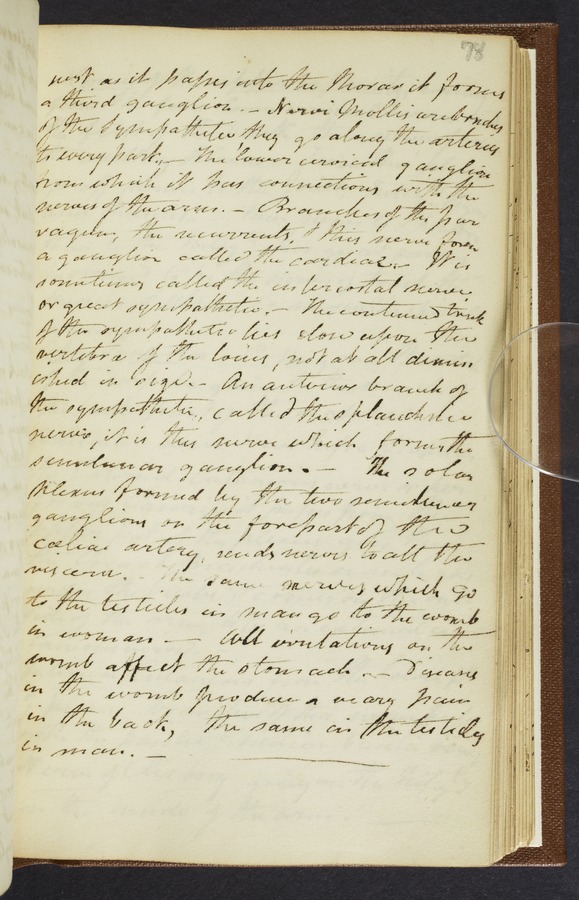 78
next as it passes into the thorax it forms
a third ganglion. – Nervi Mollis are branches
of the Sympathetic they go along the arteries
to every part. – The lower cervical ganglion
from which it has connections with the
nerves of the arm. – Branches of the par
vagum, the recurrents, & this nerve form
a ganglion called the cardiac. It is
sometimes called the intercostal nerve
or great sympathetic. – The continued trunk
of the sympathetic lies close upon the
vertebra of the loins, not at all dimin
ished in size. – An anterior branch of
the sympathetic, called the splanchnic
nerve, it is this nerve which forms the
semilunar ganglion. – The solar
plexus formed by the two semilunar
ganglions on the forepart of the
cœliac artery, sends nerves to all the
viscera. – The same nerves which go
to the testicles in man go to the womb
in woman – All irritations on the
womb affect the stomach. – Disease
in the womb produces a weary pain
in the back, the same in the testicles
in man. –